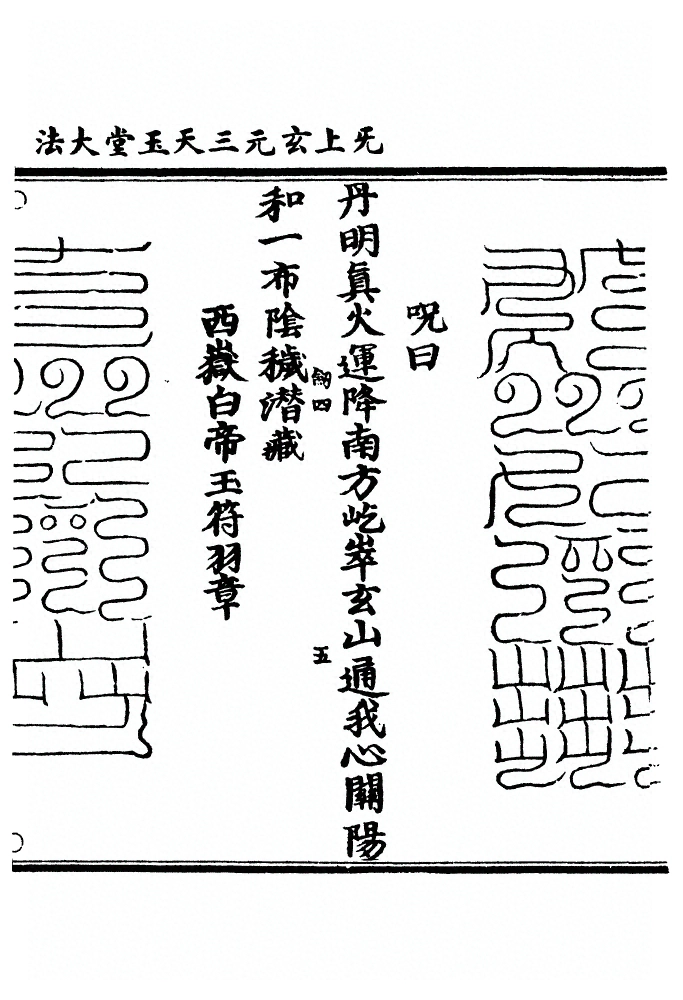 旡上玄元三天玉堂大法
呪曰
丹明眞火運降南方屹崒玄山通我心關陽
劒四
五
和一布陰穢潛藏
西嶽白帝玉符羽章